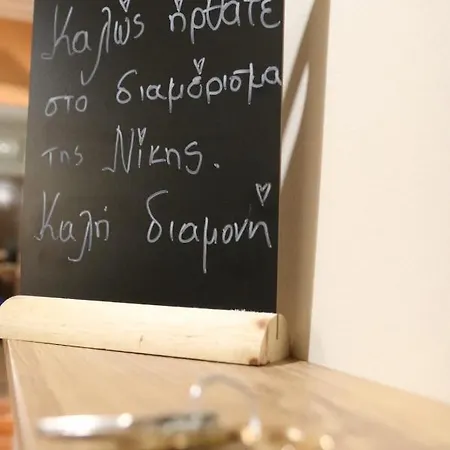 Καλώς ήρθατε
στο διαμόρισμα
της Νίκης.
Καλή διαμονή